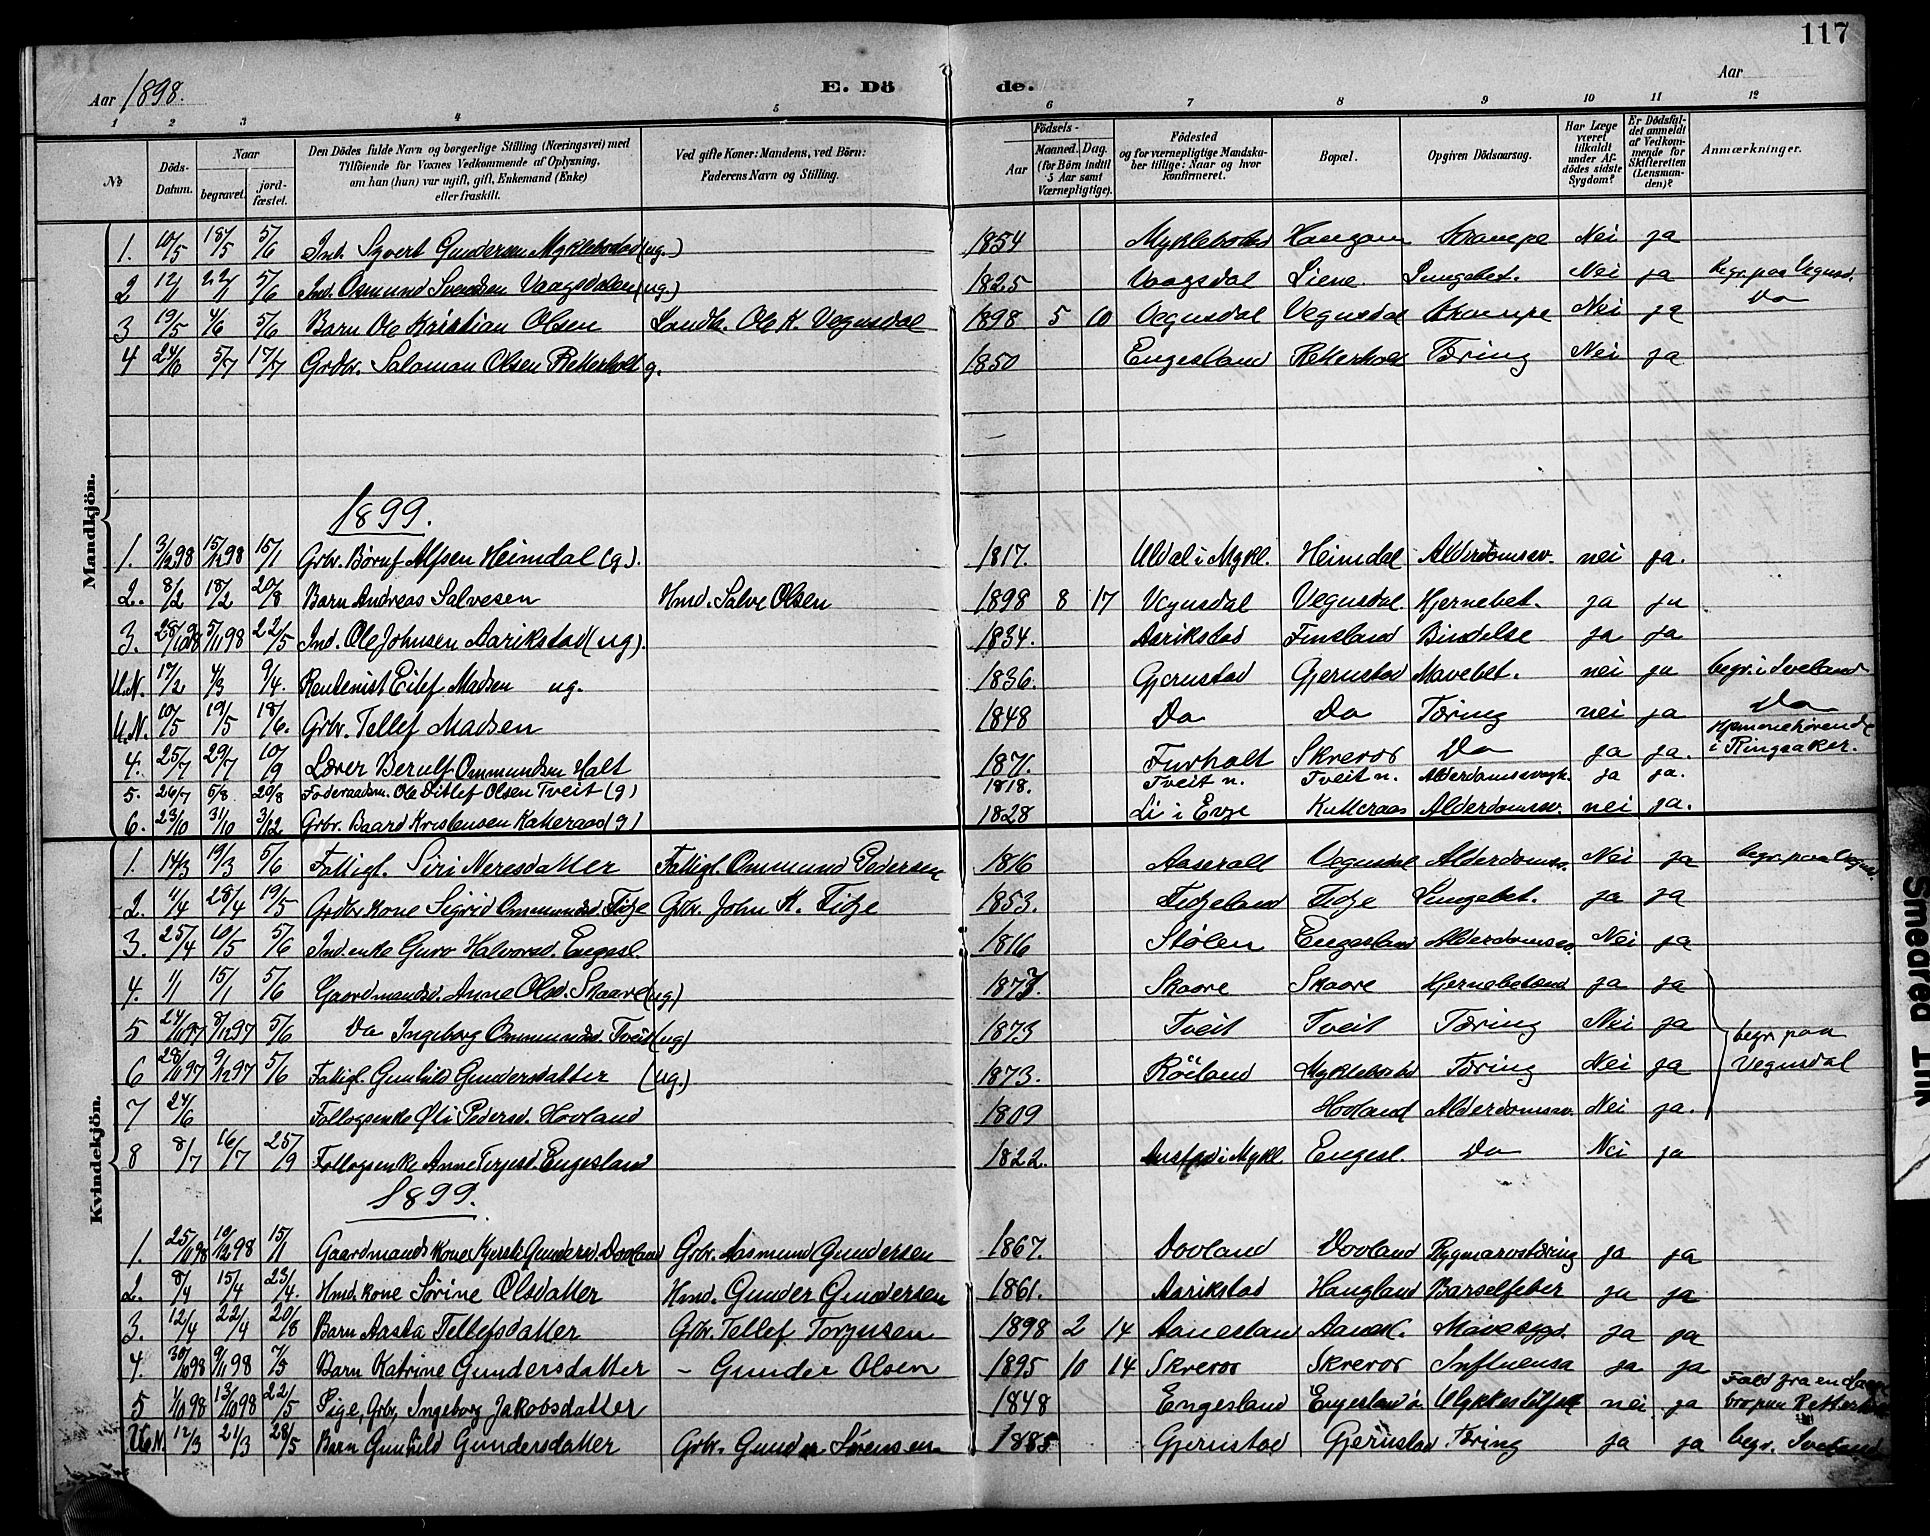 117
Aar 1898. E. Dö de. Aar
1 2 3 4 5 6 7 8 9 10 11 12
№ Döds-Datum. Naar begravet. jordfæstet. Den Dödes fulde Navn og borgerlige Stilling (Næringsvei) med Tilföiende for Voxnes Vedkommende af Oplysning, om han (hun) var ugift, gift, Enkemand (Enke) eller fraskilt. Ved gifte Koner: Mandens, ved Börn: Faderens Navn og Stilling. Födsels- Aar Maaned. Dag. (for Börn indtil 5 Aar samt Værnepligtige). Födested og for værnepligtige Mandskaber tillige: Naar og hvor konfirmeret. Bopæl. Opgiven Dödsaarsag. Har Læge været tilkaldt under Afdödes sidste Sygdom? Er Dödsfaldet anmeldt af Vedkommende for Skifteretten (Lensmanden)? Anmærkninger.
Mandkjön.
1. 10/5 18/5 5/6 Ind. Syvert Gundersen Myklebostad (ug.) 1854 Myklebostad Haugan Krampe Nei ja
2 12/1 22/1 5/6 Ind. Osmund Svendsen Vaagsdalen (ug.) 1825 Vaagsdal Liene Lungebet. Nei ja begr. paa Vegusd.
3 19/5 4/6 5/6 Barn Ole Kristian Olsen Landh. Ole K. Vegusdal 1898 5 10 Vegusdal Vegusdal Krampe Nei ja Do
4 24/6 5/7 17/7 Grdbr. Salamon Olsen Retterholt g. 1850 Engesland Retterholt Tæring Nei ja
1899.
1. 3/12 98 15/12 98 15/1 Grbr. Børuf Alfsen Heimdal (g). 1817. Uldal i Mykl. Heimdal Alderdomssv. nei ja.
2. 8/2 18/2 20/8 Barn Andreas Salvesen Hmd. Salve Olsen 1898 8 17 Vegusdal Vegusdal. Hjernebet. ja ja
3. 28/10 98 5/11 98 22/5 Ind. Ole Johnsen Aarikstad (ug). 1834. Aarikstad Finsland Bindelse ja ja
U.N. 17/2 4/3 9/4. Rentenist Eilef Madsen ug. 1836. Gjerustad Gjerustad Mavebet. nei ja begr. i Iveland
U.N. 10/5 19/5 18/6. Grbr. Tellef Madsen 1848 Do Do Tæring nei ja Do
4. 25/7 29/7 10/9 Lærer Berulf Ommundsen Holt 1871. Furholt Skreros Do ja ja. Hjemmehørende i Ringsaker.
5. 26/7 5/8 20/8 Foderaadsm. Ole Ditlef Olsen Tveit (g) 1818. Tveit n. Tveit n. Alderdomssvagh. ja ja.
6. 23/10 31/10 3/12 Grbr. Baard Kristensen Katteraas (g) 1828 Li i Evje Katteraas Alderdomssv. nei ja.
Kvindekjön.
1. 14/3 19/3 5/6 Fattigl. Siri Neresdatter Fattigl. Ommund Pedersen 1816 Aaserall Vegusdal Alderdomssv. Nei ja begr. paa Vegusd.
2. 4/4 28/4 19/5 Grdbr kone Sigrid Ommundsd. Fidje Grbr. John K. Fidje 1853. Fidjeland Fidje Lungebet. ja ja
3. 25/4 10/5 5/6 Ind. enke Guro Halvorsd. Engesl. 1816 Stølen Engesland Alderdomssv. Nei ja
4. 1/1 15/1 5/6 Gaardmandsd. Anne Olsd. Skaare (ug) 1873. Skaare Skaare Hjernebetænd ja ja
5 24/11 97 8/12 97 5/6 Do Ingeborg Ommundsd. Tveit (ug) 1873 Tveit Tveit Tæring Nei ja begr. paa
6 28/11 97 9/12 97 5/6 Fattigl. Gunhild Gundersdatter (ug.) 1873. Röiland Myklebostad Tæring Nei ja Vegusdal
7 24/6 Follogsenke Oli Pedersd. Hovland 1809 Hovland Alderdomssv. Nei ja.
8 8/7 16/7 25/9 Follogsenke Anne Terjesd. Engesland 1822. i Mykl. Engesl. Do Nei ja
1899.
1. 25/11 98 10/12 98 15/1 Gaardmands kone Kjersti Gundersd. Dovland Grbr. Aasmund Gundersen 1867. Dovland Dovland Rygmarvstæring ja ja
2. 8/4 15/4 23/4. Hmd. kone Sørine Olsdatter Hmd. Gunder Gundersen 1861. Aarikstad Haugland Barselfeber ja ja
3. 12/4 22/4 20/8 Barn Aasta Tellefsdatter Grbr. Tellef Torjusen 1898 2 14 Aanesland Aanesl. Mavesygd. ja ja
4. 30/10 98 9/11 98 7/5 Barn Katrine Gundersdatter - Gunder Olsen 1895 10 14 Skreros Skreros Influensa ja ja
5 1/10 98 13/10 98 22/5 Pige, Grbr, Ingeborg Jakobsdatter 1848 Engesland Engesland ö. Ulykkestilfæl nei ja Fald fra en
bro paa
U.N. 12/3 21/3 28/5 Barn Gunhild Gundersdatter Grbr. Gunder Sørensen 1885 Gjerustad Gjerustad Tæring ja ja begr. Iveland
Smeared Ink